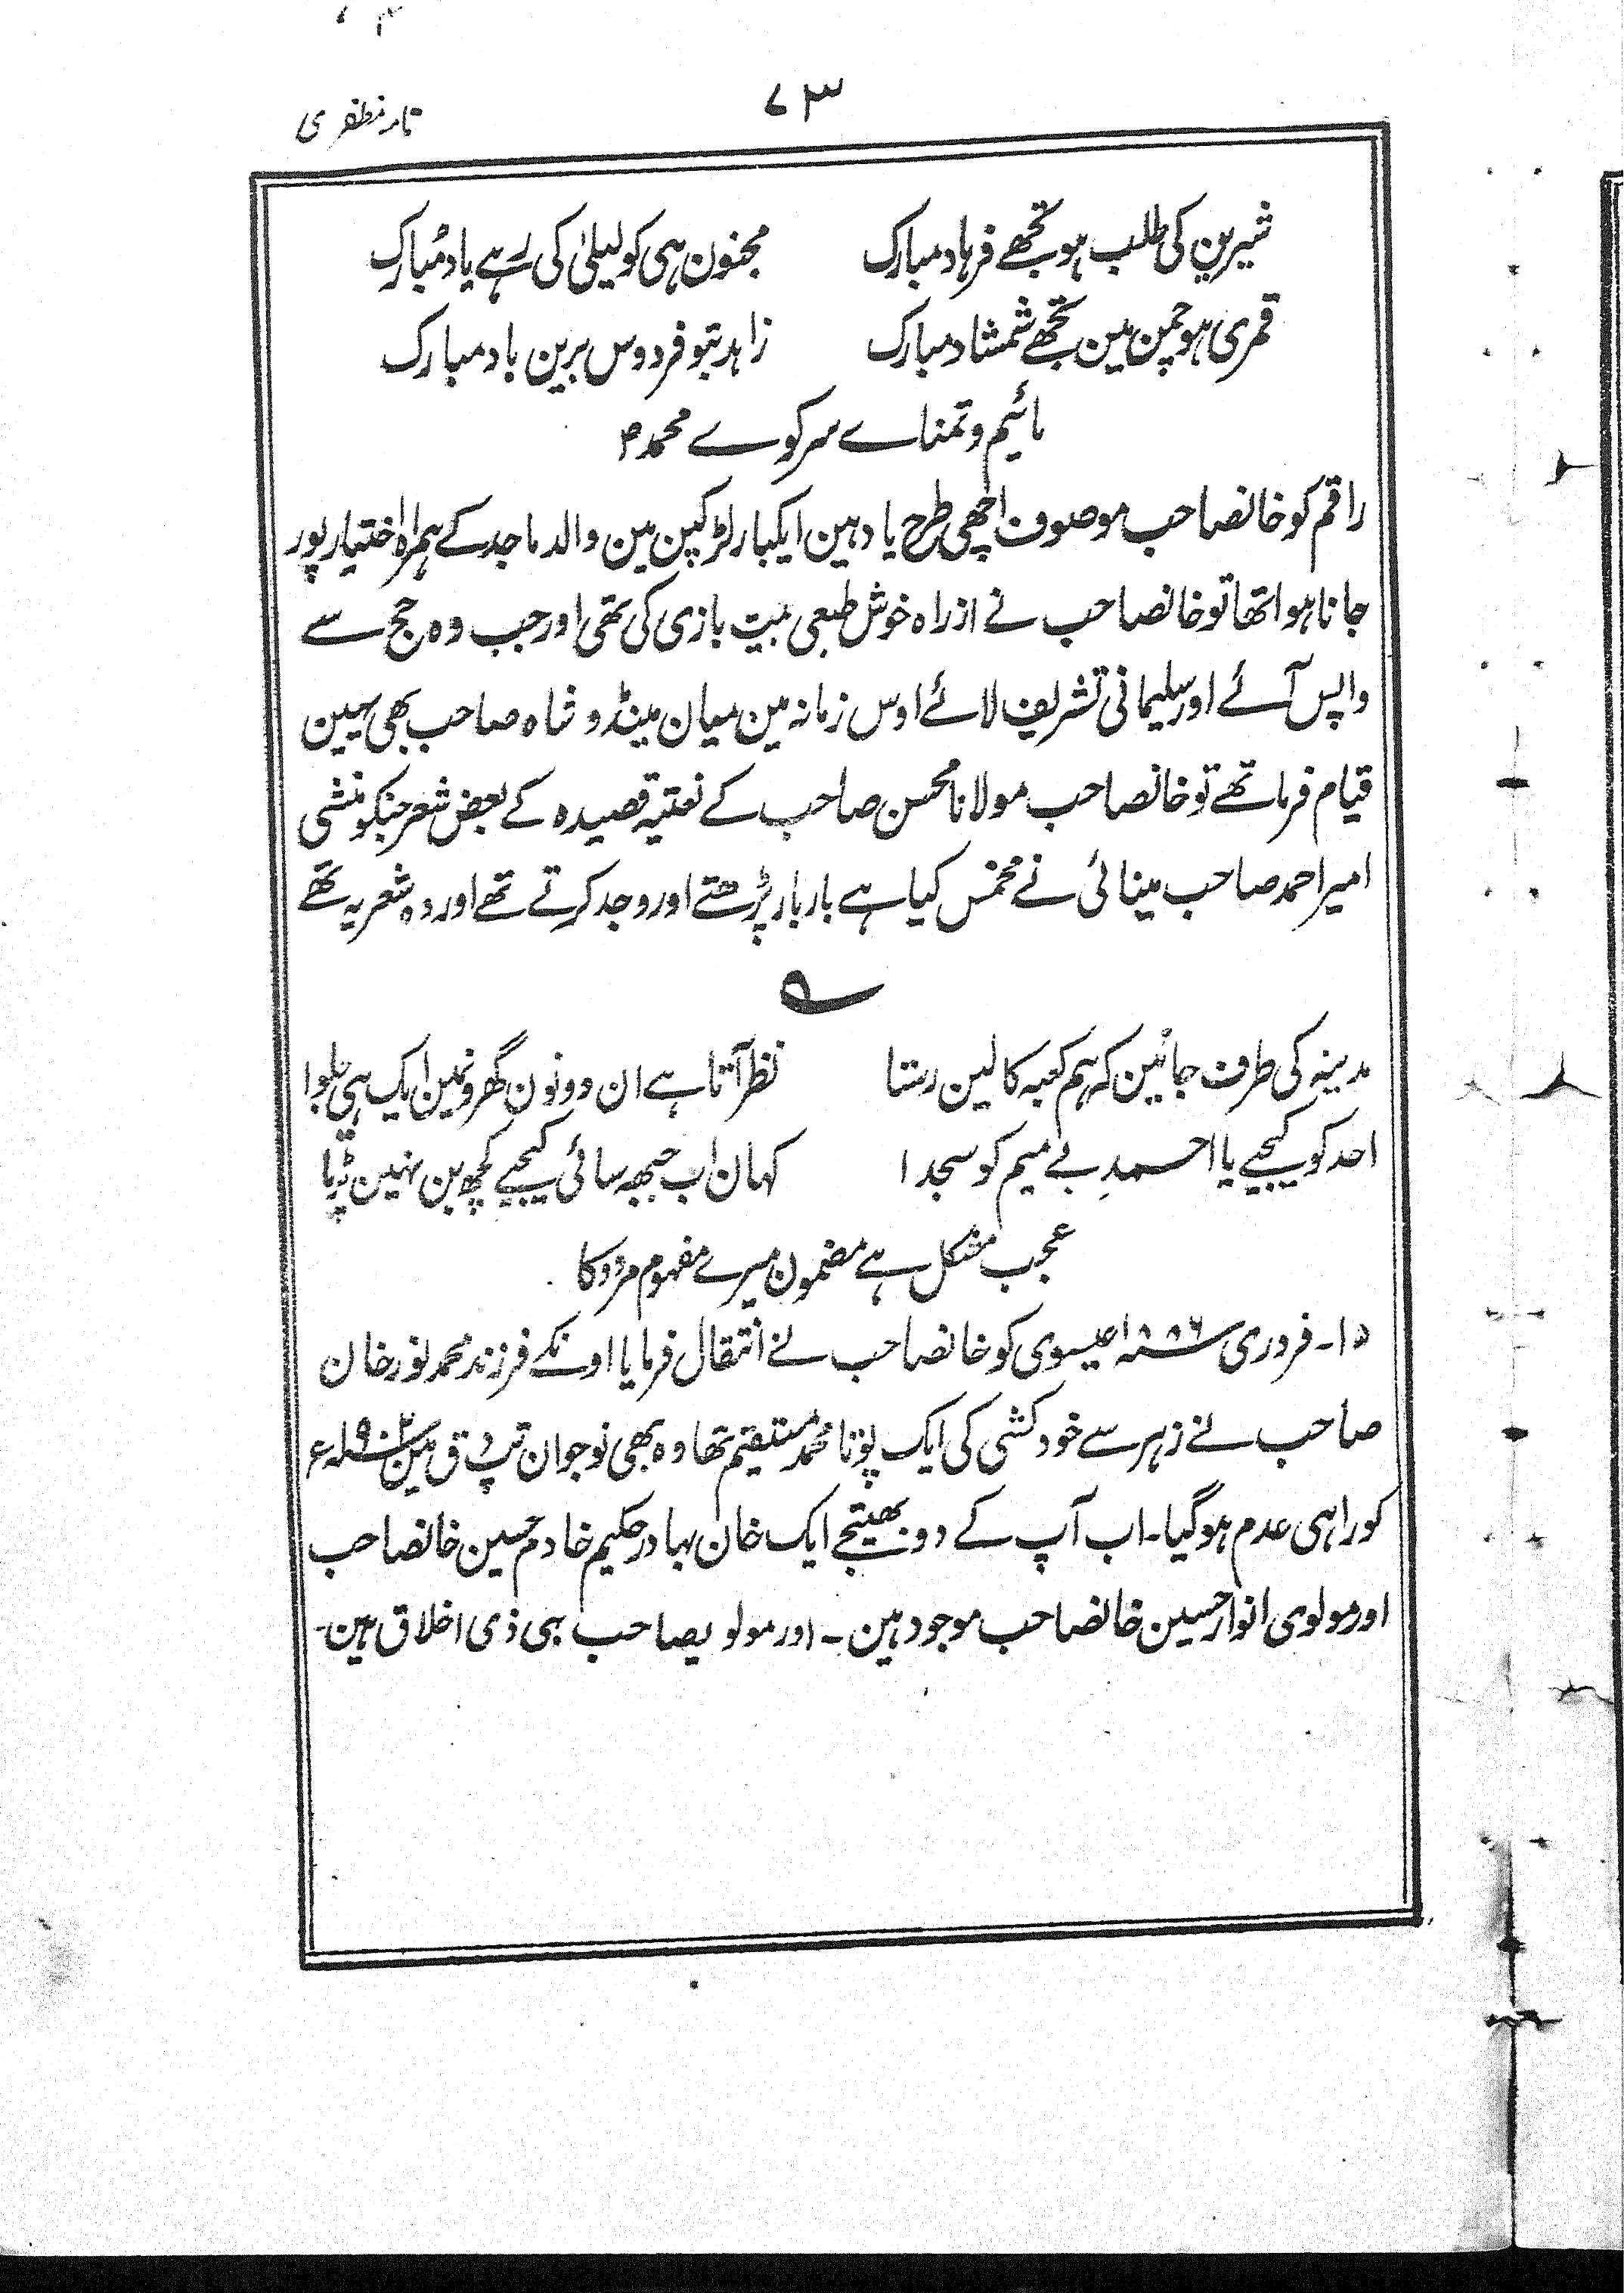 ۷۳
نامہ مظفری
شیرین کی طلب ہو تجھے فرہاد مبارک مجنون ہی کو لیلیٰ کی رہے یاد مُبارک
قمری ہو چمن مین تجھے شمشاد مبارک زاہد بتو فردوس برین باد مبارک
مائیم و تمناے سر کوے محمدؐ
راقم کو خانصاحب موصوف اچھی طرح یاد ہین ایکبار لڑکپن مین والد ماجد کے ہمراہ اختیارپور
جانا ہوا تھا تو خانصاحب نے ازراہ خوش طبعی بیت بازی کی تھی اور جب وہ حج سے
واپس آئے اور سلیمانی تشریف لائے اوس زمانہ مین میان مینڈو شاہ صاحب بھی یہین
قیام فرماتھے تو خانصاحب مولانا محسن صاحب کے نعتیہ قصیدہ کے بعض شعر جنکو منشی
امیر احمد صاحب مینائی نے مخمس کیا ہے بار بار پڑھتے اور وجد کرتے تھے اور وہ شعر یہ تھے
ے
مدینہ کی طرف جائین کہ ہم کعبہ کا لین رستا نظر آتا ہے ان دونون گھرونمین ایک ہی جلوا
احد کو کیجیے یا احمدِ بے میم کو سجدا کہان اب جبھہ سائی کیجیے کچھ بن نہین پڑتا
عجب مشکل ہے مضمون میرے مفہوم مردد کا
۱۵۔ فروری سنہ ۱۸۸۶ عیسوی کو خانصاحب نے انتقال فرمایا اونکے فرزند محمد نور خان
صاحب نے زہر سے خودکشی کی ایک پوتا محمد مستقیم تھا وہ بھی نوجوان تپ دق مین سنہ ۱۹۰۲ء
کو راہی عدم ہو گیا۔ اب آپ کے دو بھتیجے ایک خان بہادر حکیم خادم حسین خانصاحب
اور مولوی انوار حسین خانصاحب موجود ہین۔ اور مولویصاحب بہی ذی اخلاق ہین۔